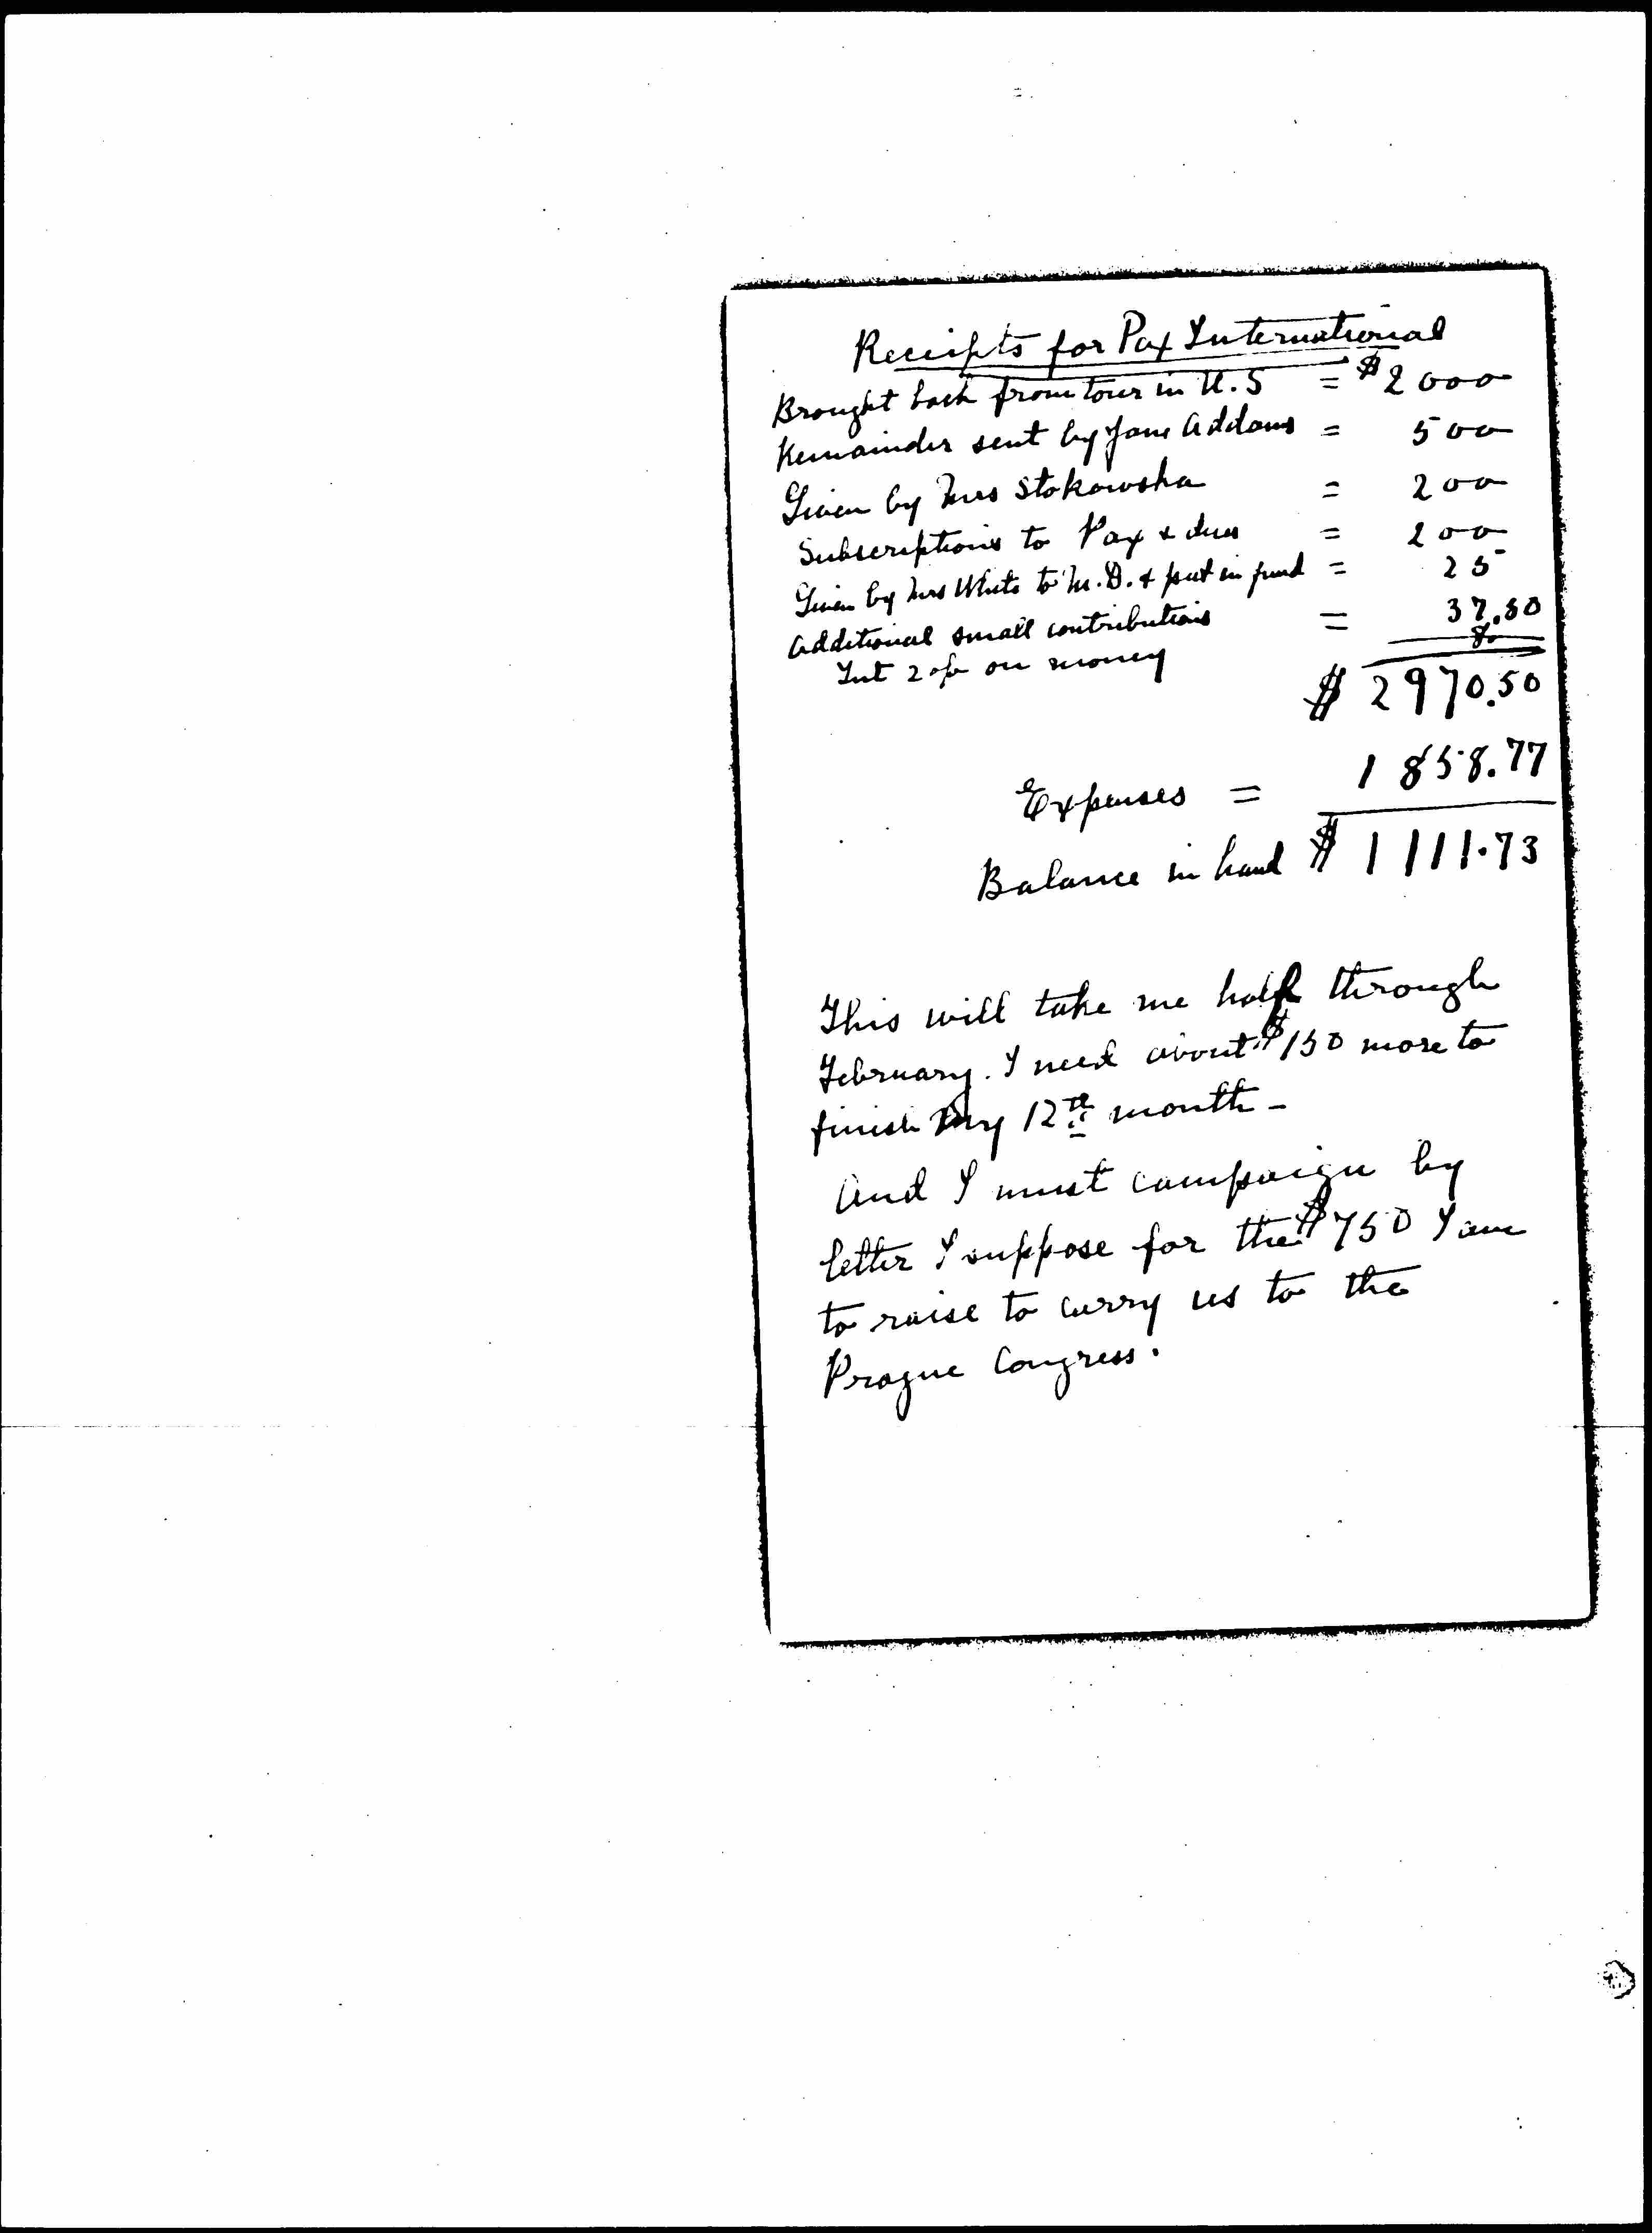 Receipts for Pax International
Brought back from tour in U.S = $2000
Remainder sent by Jane Addams = 500
Given by Mrs Stokowska = 200
Subscriptions to Pax & dues = 200
Given by Mrs White to M.D. & put in fund = 25
Additional small contributions = 37.50
Int 2 % on money 8
$ 2970.50
Expenses = 1858.77
Balance in hand $ 1111.73
This will take me half through
February. I need about $150 more to
finish my 12th month -
And I must campaign by
letter I suppose for the $750 I am
to raise to carry us to the
Prague Congress.